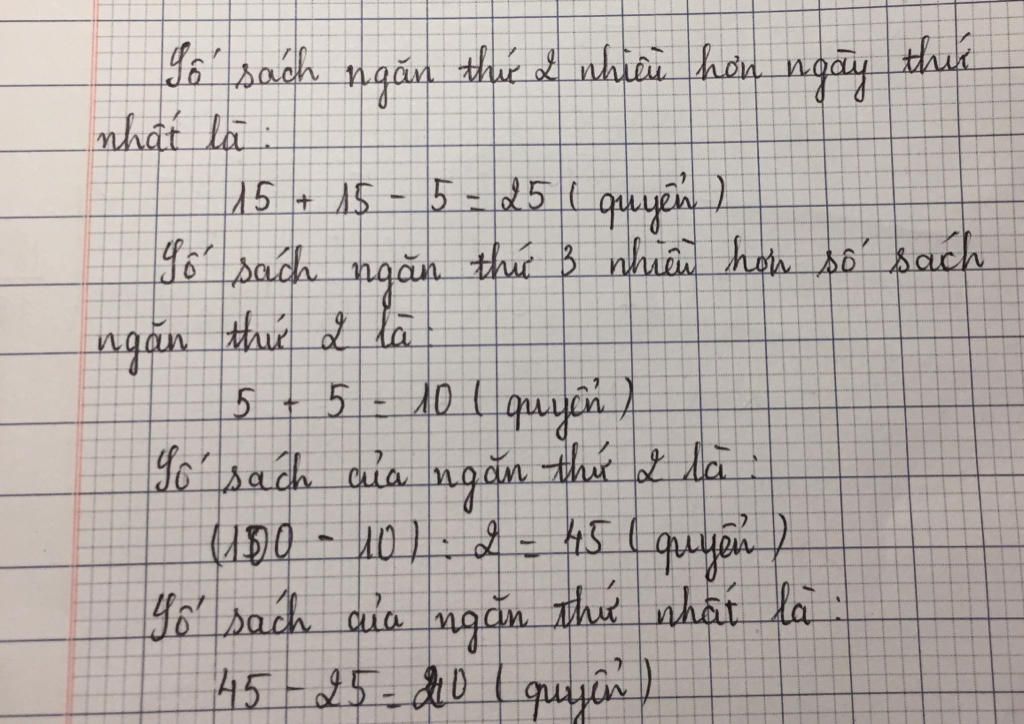 Số sách ngăn thứ 2 nhiều hơn ngày thứ
nhất là:
15 + 15 - 5 = 25 ( quyển )
Số sách ngăn thứ 3 nhiều hơn số sách
ngăn thứ 2 là:
5 + 5 = 10 ( quyển )
Số sách của ngăn thứ 2 là:
(100 - 10) : 2 = 45 ( quyển )
Số sách của ngăn thứ nhất là:
45 - 25 = 20 ( quyển )